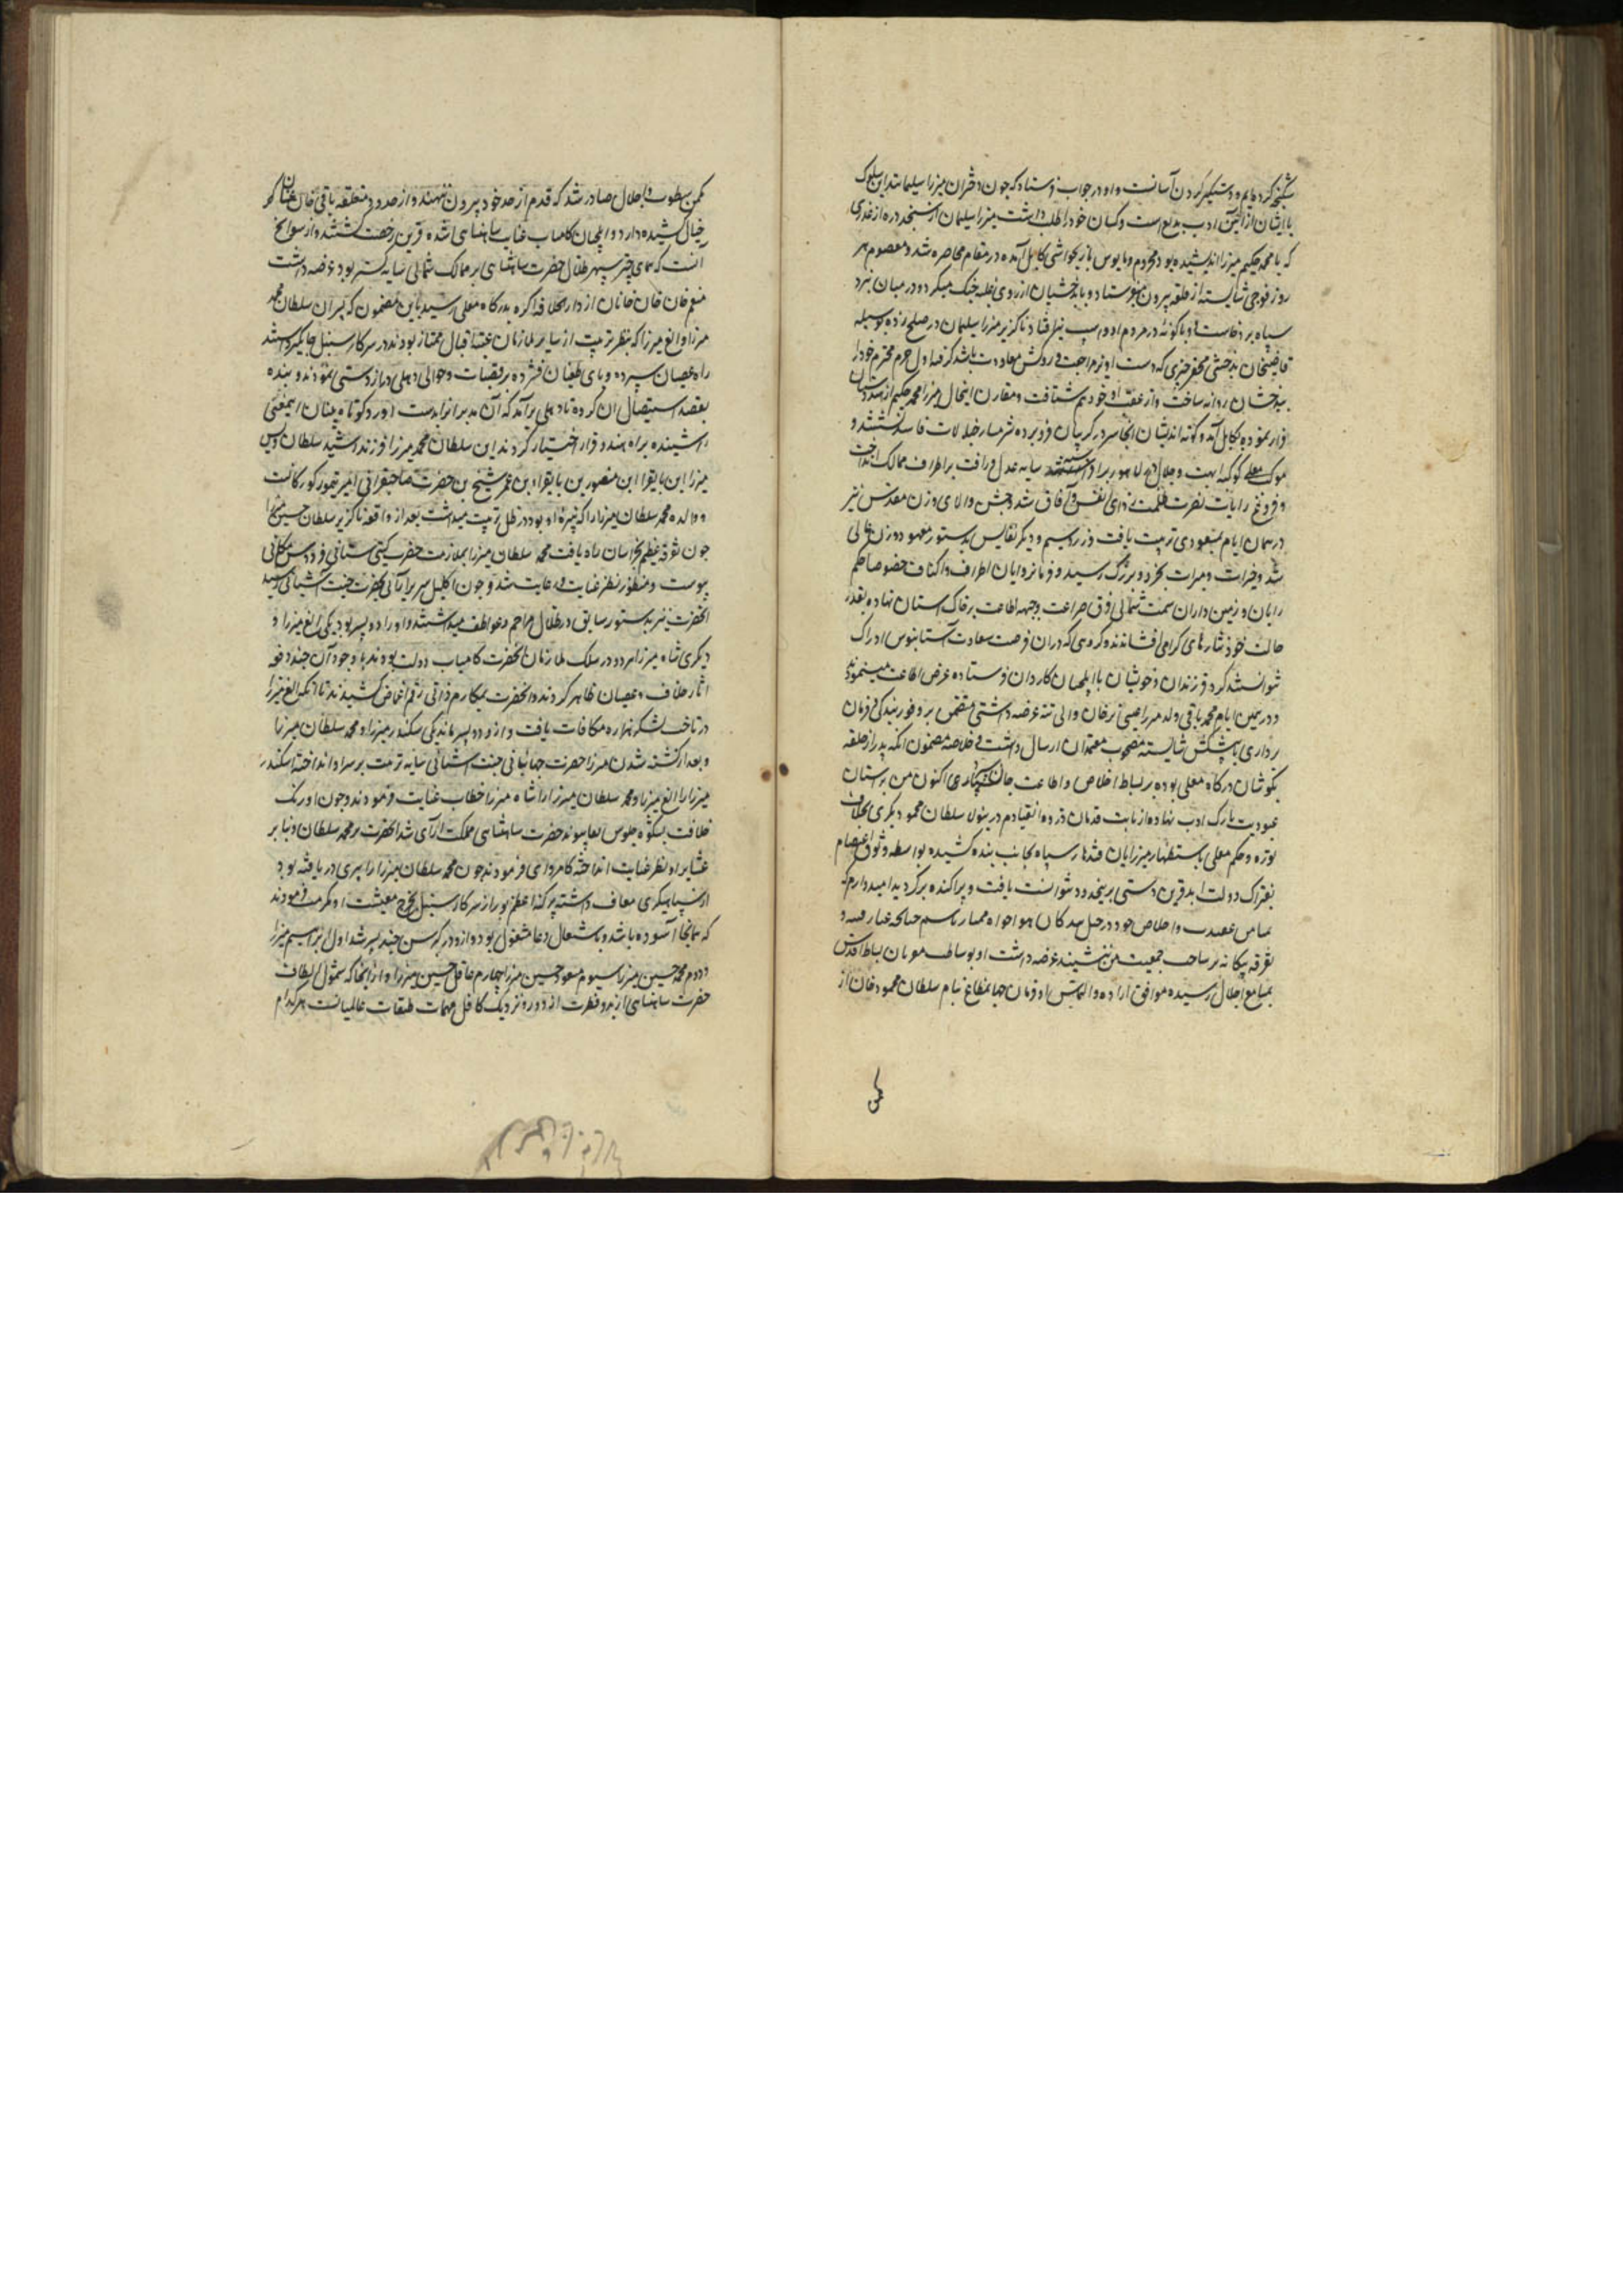 کرده‌ایم و دستگیر کردن آسانست و او در جواب فرستاد که چون دختران میرزا سلیمان
با ایشان از آئین ادب بدیع است و کسان خود را طلب داشت میرزا سلیمان
که با محمد حکیم میرزا اندیشیده بود محروم و مایوس بازبحواشی کابل آمده در مقام محاصره شد و معصوم هر
روز فوجی شایسته از قلعه بیرون میفرستاد و با بدخشیان از روی غلبه جنک میکرد و در میان
سپاه برخاست و در مردم او و اسپ نیز افتاد ناکزیر میرزا سلیمان در صلح زده بوسیله
قاضیخان بدخشی محقر چیزی که دست آویز مراجعت و روکش معاودت باشد گرفته اول حرم محترم خود را
ببدخشان روانه ساخت و از عقب او خود هم شتافت و مقارن اینحال میرزا محمد حکیم از
قرار نموده بکابل آمد و کوته اندیشان آنجا سر در گریبان فرو برده شرمسار خیالات فاسد نشستند و
موکب معلی کوکبه ابهت و جلال به لاهور سایه عدل و رافت بر اطراف ممالک انداخت
و فروغ رایات نصرت ظلمت زدای انفس و آفاق شد و جشن والای وزن مقدس نیز
در همان ایام ترتیب یافت و زر و سیم و دیگر نفایس بدستور معهود وزن عالی
شد و خیرات و مبرات بخرد و بزرگ رسید و فرمانروایان اطراف و اکناف خصوصا حکم
رایان و زمین داران سمت شمالی فرق ضراعت و جبهه اطاعت بر خاک آستان نهاده بقدر
حالت خود نثارهای گرامی افشاندند و گروهی که در آن فرصت سعادت آستانبوس ادراک
نتوانستند کرد فرزندان و خویشان با ایلچیان کاردان فرستاده عرض اطاعت مینمودند
و در همین ایام محمد باقی ولد میرزا عیسی ترخان والی تته عرضه داشتی متضمن بر وفور بندگی و فرمان
برداری با پیشکش شایسته مصحوب معتمدان ارسال داشت و خلاصه مضمون آنکه پدر از حلقه
بگوشان درگاه معلی بوده بر بساط اخلاص و اطاعت اکنون من بر آستان
عبودیت تارک ادب نهاده از ثابت قدمان ذروه انقیادم درینولا سلطان محمود بکری بخلاف
توره و حکم معلی باستظهار میرزایان قندهار سپاه بجانب بنده کشیده بواسطه وثوق اعتصام
بفتراک دولت ابد قرین دستی بر بنده نتوانست یافت و پراکنده برگردید امیدوارم که
عقیدت و اخلاص خود در خیل هواخواه
تفرقه بیگانه بر ساحت جمعیت من ننشیند عرضه داشت او بوساطت بساط اقدس
بمسامع اجلال رسیده موافق اراده و التماس او فرمان جهانمطاع بنام سلطان محمود خان از
مکمن
مکمن سطوت و اجلال صادر شد که قدم از حد خود بیرون ننهند و از حدود متعلقه باقی خان عنان
خیال کشیده دارد و ایلچیان کامیاب عنایت شاهنشاهی شده قرین رخصت گشتند و از سوانح
آنست که همای چتر سپهر ظلال حضرت شاهنشاهی بر ممالک شمالی سایه گستر بود عرضه داشت
منعم خان خان خانان از دار الخلافه آگره بدرگاه معلی رسید باین مضمون که پسران سلطان محمد
میرزا و الغ میرزا که بنظر تربیت از سایر ملازمان عتبه اقبال ممتاز بودند در سرکار سنبل جایگیر داشتند
راه عصیان سپرده و پای طغیان فشرده بر قصبات و حوالی دهلی دراز دستی نمودند و بنده
بقصد استیصال ایشان کرده تا دهلی برآمد که آن مدبرانرا بدست آورد کوتاه بینان اینمعنی
شنیده براه مندو قرار اختیار کردند این سلطان محمد میرزا فرزند رشید سلطان ویس
میرزا ابن بایقرا ابن منصور بن بایقرا بن عمر شیخ بن حضرت صاحبقرانی امیر تیمور گورکانست
و والده محمد سلطان میرزا را که نبیره او بود در ظل تربیت میداشت بعد از واقعه ناکزیر سلطان حسین میرزا
چون تفرقه عظیم بخراسان راه یافت محمد سلطان میرزا بملازمت حضرت گیتی ستانی فردوس مکانی
پیوست و منظور نظر عنایت و رعایت شد و چون اکلیل سریر آرائی بحضرت جنت آشیانی رسید
آنحضرت نیز بدستور سابق در ظلال مراحم و عواطف میداشتند و او را دو پسر بود یکی الغ میرزا و
دیگری شاه میرزا هر دو در سلک ملازمان آنحضرت کامیاب دولت بودند با وجود آن چند دفعه
آثار خلاف و عصیان ظاهر کردند و آنحضرت بمکارم ذاتی رقم اغماض کشیدند تا آنکه الغ میرزا
در تاخت لشکر هزاره مکافات یافت و از و دو پسر ماند یکی سکندر میرزا و محمد سلطان میرزا
و بعد از کشته شدن میرزا حضرت جهانبانی جنت آشیانی سایه تربیت بر سر او انداخته اسکندر
میرزا را الغ میرزا و محمد سلطان میرزا را شاه میرزا خطاب عنایت فرمودند و چون اورنک
خلافت بشکوه جلوس حضرت شاهنشاهی مملکت آرای شد آنحضرت بر محمد سلطان و نبایر
عشایر او نظر عنایت انداخته کامروای فرمودند چون محمد سلطان میرزا را پیری دریافته بود
از سپاهیگری معاف داشته پرگنه اعظم پور از سرکار سنبل بخرج معیشت او مکرمت فرمودند
که همانجا آسوده باشد و باشتغال دعا مشغول بود و از و در کبر سن چند پسر شد اول ابراهیم میرزا
دوم محمد حسین میرزا سیوم مسعود حسین میرزا چهارم عاقل حسین میرزا و از آنجا که شمول الطاف
حضرت شاهنشاهی از بدو فطرت از دور و نزدیک کافل مهمات طبقات عالمیانست هر کدام